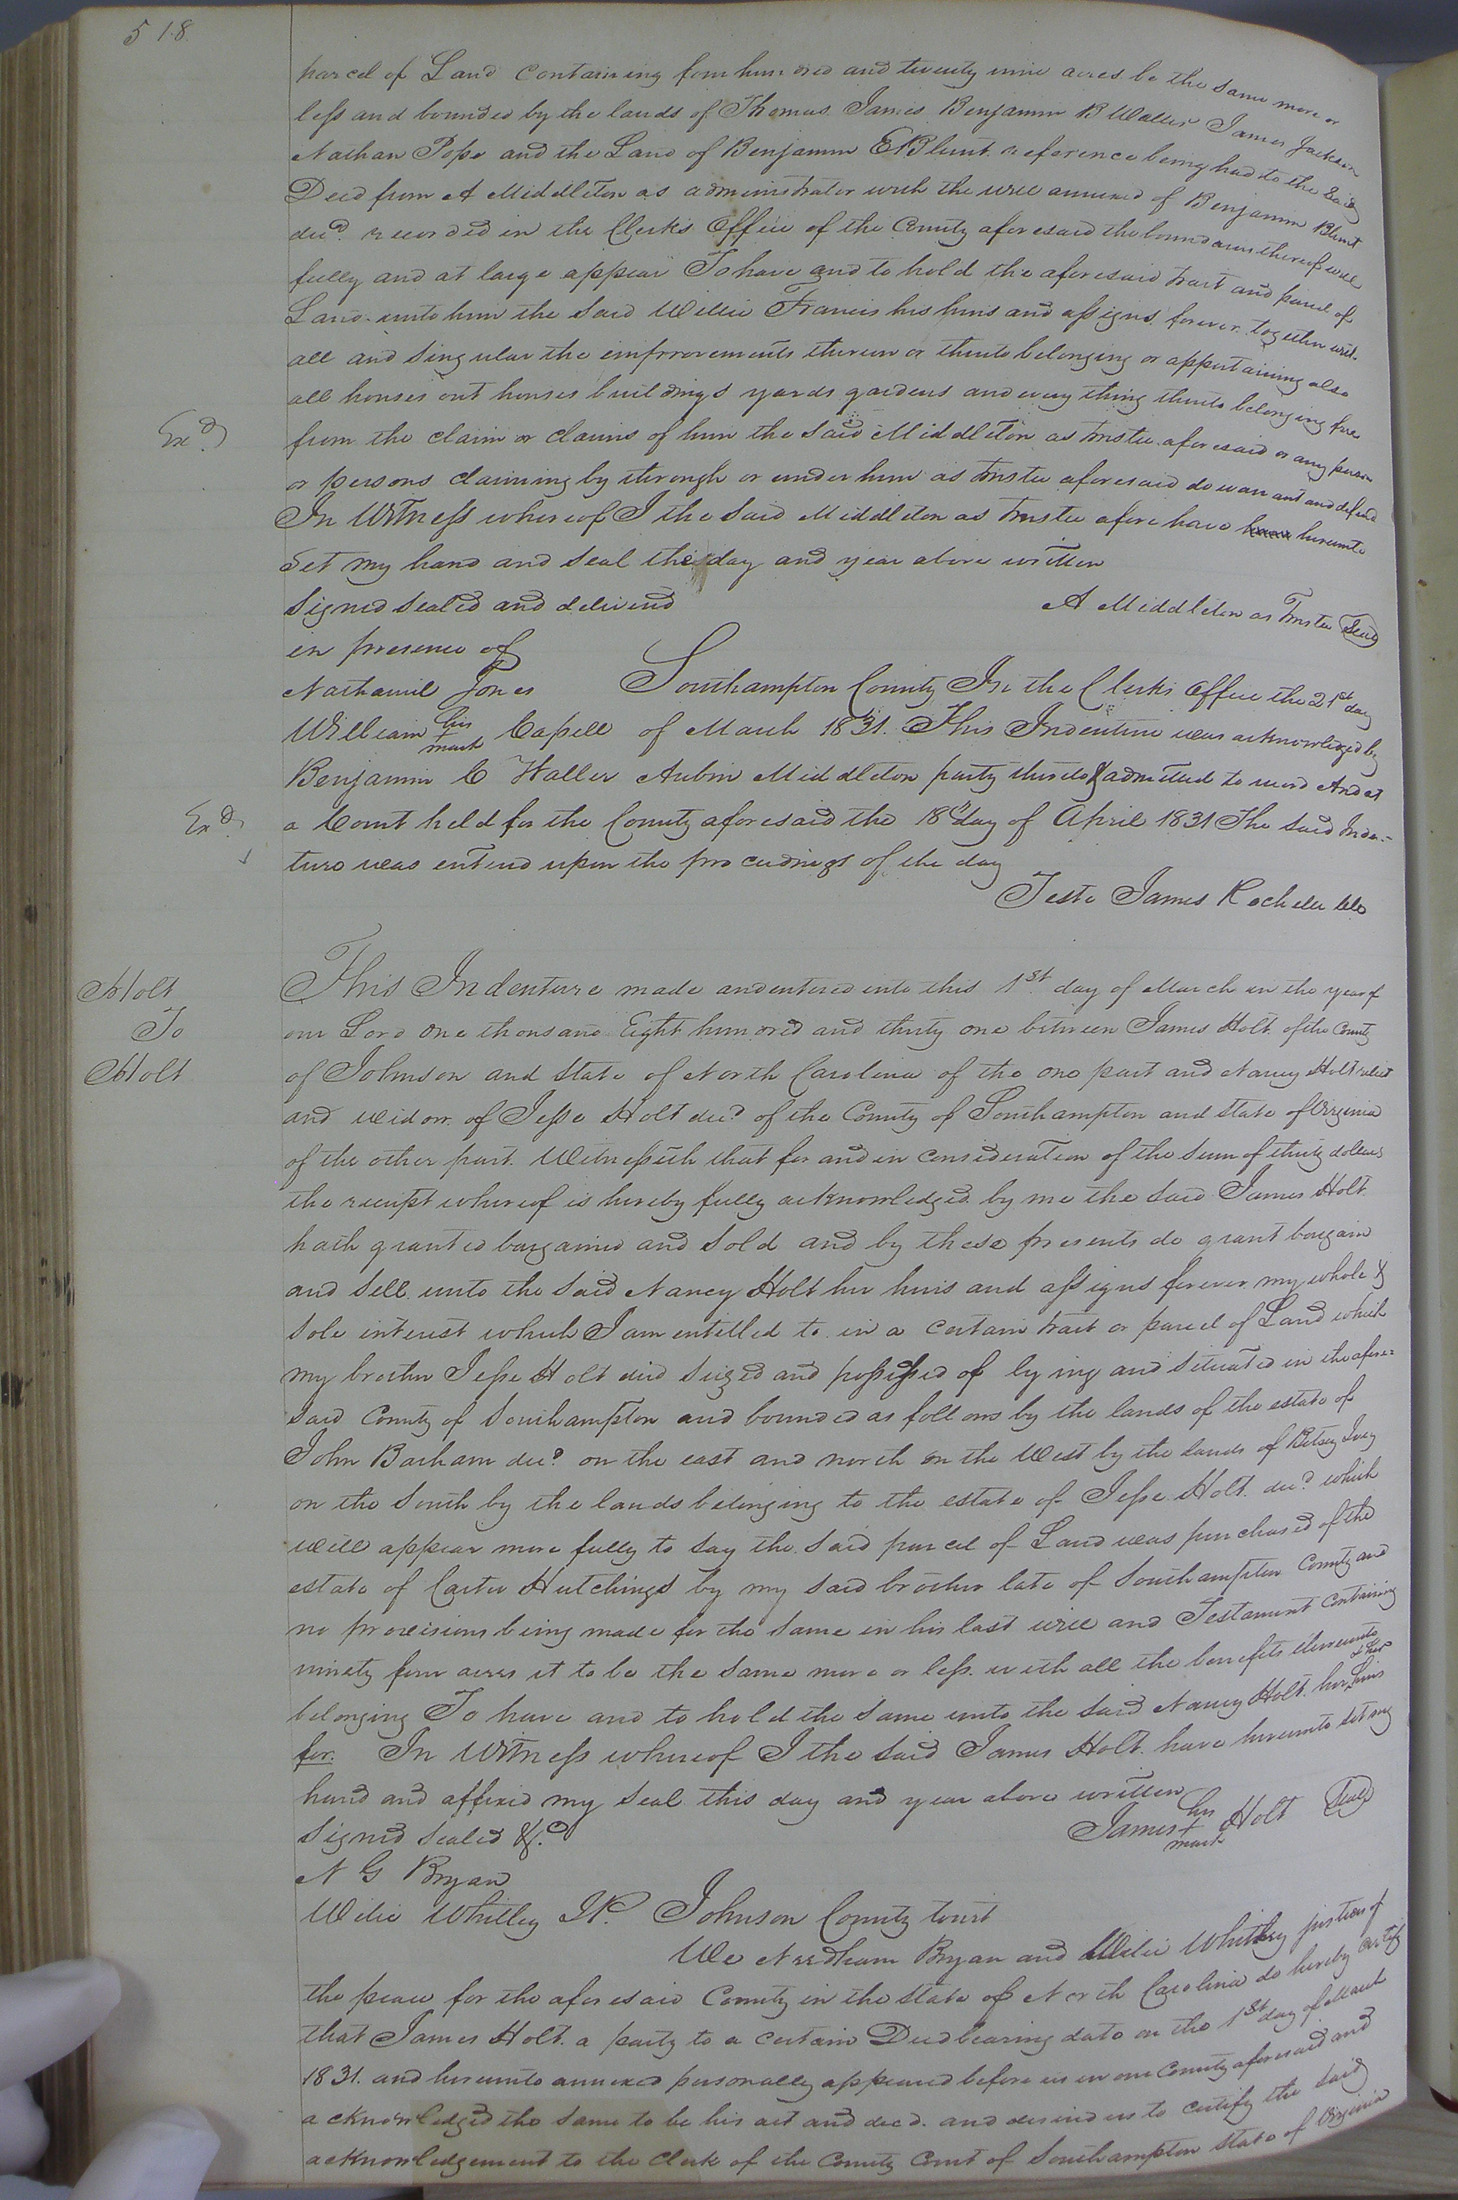 518
parcel of Land containing four hundred and twenty nine acres be the same more or
less and bounded by the lands of Thomas James Benjamin B Waller James Jackson
Nathan Pope and the Land of Benjamin E Blunt reference being had to the said
Deed from A Middleton as administrator with the will annexed of Benjamin Blunt
decd. recorded in the Clerks Office of the County aforesaid the boundaries thereof will
fully and at large appear To have and to hold the aforesaid tract and parcel of
Land unto him the said Willie Francis his heirs and assigns forever together with
all and singular the improvements thereon or thereto belonging or appertaining also
all houses out houses buildings yards gardens and every thing thereto belonging free
Exd from the claim or claims of him the said Middleton as Trustee aforesaid or any person
or persons claiming by through or under him as Trustee aforesaid do warrant and defend
In Witness whereof I the said Middleton as Trustee afore have hereunto
set my hand and seal the day and year above written
Signed Sealed and delivered A Middleton as Trustee Seal
in presence of
Nathaniel Jones Southampton County In the Clerks Office the 21st day
William his + mark Capell of March 1831. This Indenture was acknowledged by
Benjamin C Waller Aubin Middleton party thereto & admitted to record And at
Exd a Court held for the County aforesaid the 18th day of April 1831 The said Inden-
ture was entered upon the proceedings of the day
Teste James Rochelle Clk
Holt This Indenture made and entered into this 1st. day of March in the year of
To our Lord one thousand Eight hundred and thirty one between James Holt of the County
Holt of Johnson and State of North Carolina of the one part and Nancy Holt relict
and widow of Jesse Holt decd of the County of Southampton and State of Virginia
of the other part. Witnesseth that for and in consideration of the sum of thirty dollars
the receipt whereof is hereby fully acknowledged by me the said James Holt
hath granted bargained and sold and by these presents do grant bargain
and sell unto the said Nancy Holt her heirs and assigns forever my whole &
sole interest which I am entitled to in a certain tract or parcel of Land which
my brother Jesse Holt died seized and possessed of lying and situated in the afore=
said County of Southampton and bounded as follows by the lands of the estate of
John Barham decd. on the east and north on the West by the lands of Betsey Ivey
on the South by the lands belonging to the estate of Jesse Holt decd. which
will appear more fully to say the said parcel of Land was purchased of the
estate of Carter Hutchings by my said brother late of Southampton County and
no provisions being made for the same in his last will and Testament containing
ninety four acres it to be the same more or less. with all the benefits thereunto
belonging To have and to hold the same unto the said Nancy Holt her & her heirs
for. In Witness whereof I the said James Holt have hereunto set my
hand and affixed my seal this day and year above written
Signed Sealed &c James his + mark Holt Seal
N G Bryan
Wilie Whitley J.P. Johnson County Court
We Needham Bryan and Wilie Whitley justices of
the peace for the aforesaid County in the State of North Carolina do hereby certify
that James Holt a party to a certain Deed bearing date on the 1st day of March
1831. and hereunto annexed personally appeared before us in our County aforesaid and
acknowledged the same to be his act and deed. and desired us to certify the said
acknowledgement to the Clerk of the County Court of Southampton State of Virginia